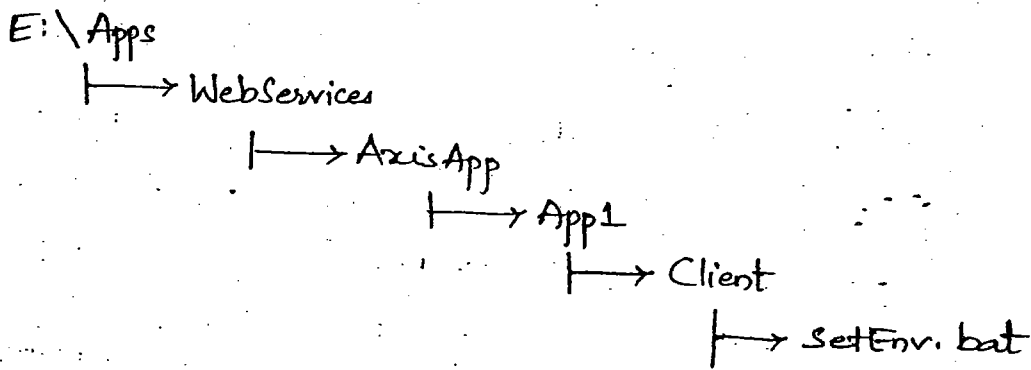 E:\Apps
WebServices
AxisApp
App1
Client
SetEnv.bat